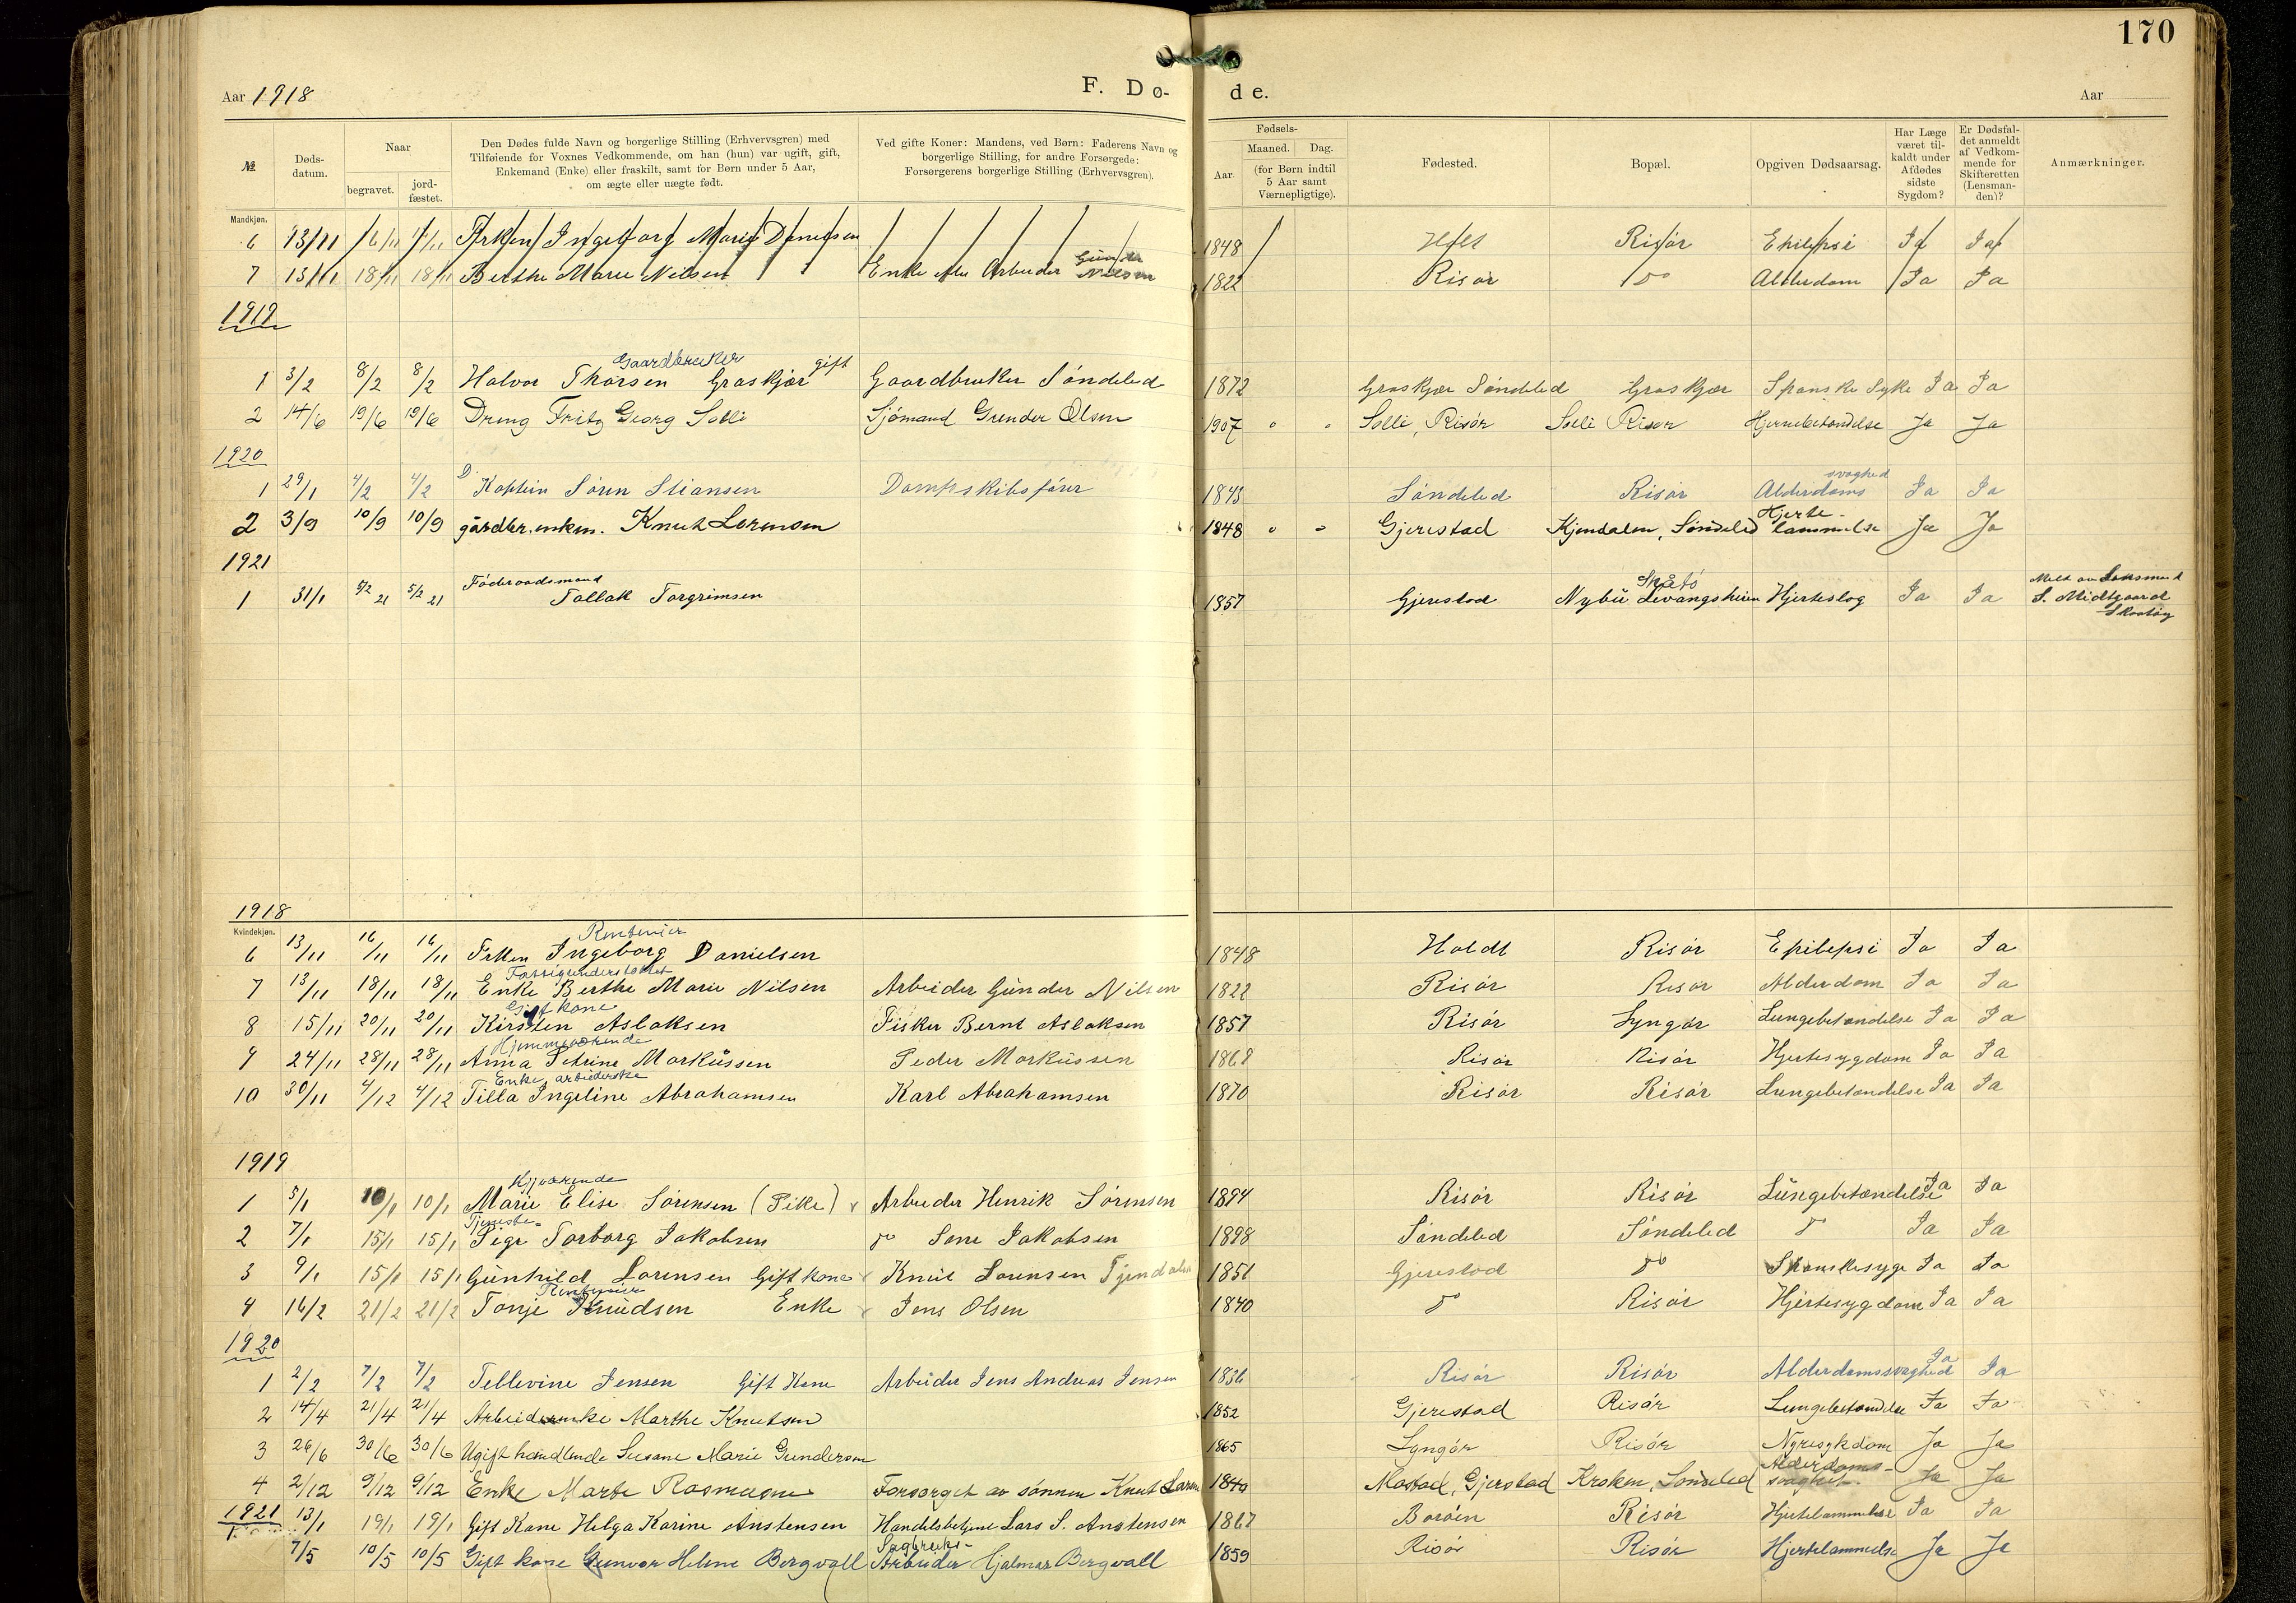 170
Aar 1918
F. Dø-
de.
Aar
№
Døds-datum.
Naar
begravet.
jord-fæstet.
Den Dødes fulde Navn og borgerlige Stilling (Erhvervsgren) med
Tilføiende for Voxnes Vedkommende, om han (hun) var ugift, gift,
Enkemand (Enke) eller fraskilt, samt for Børn under 5 Aar,
om ægte eller uægte født.
Ved gifte Koner: Mandens, ved Børn: Faderens Navn og
borgerlige Stilling, for andre Forsørgede:
Forsørgerens borgerlige Stilling (Erhvervsgren).
Fødsels-
Aar.
Maaned.
Dag.
(for Børn indtil
5 Aar samt
Værnepligtige).
Fødested.
Bopæl.
Opgiven Dødsaarsag.
Har Læge
været til-
kaldt under
Afdødes
sidste
Sygdom?
Er Dødsfal-
det anmeldt
af Vedkom-
mende for
Skifteretten
(Lensman-
den)?
Anmærkninger.
Mandkjøn.
6 13/11 16/11 Frken Ingeborg Marie Danielsen 1848 Holt Risör Epilepsi Ja Ja
7 13/11 18/11 18/11 Berthe Marie Nilsen Enke efter Arbeider Günder Nilsen 1822 Risör do Alderdom Ja Ja
1919
Gaardbruker gift
1 3/2 8/2 8/2 Halvor Thorsen Graskjær Gaardbruker Söndeled 1872 Graskjær Söndeled Graskjær Spanske Syke Ja Ja
2 14/6 19/6 19/6 Dreng Fritz Georg Solli Sjömand Gunder Olsen 1907 Solli, Risör Solli Risør Hjernebetændelse Ja Ja
1920
svaghed
1 29/1 4/2 4/2 Kaptein Sören Stiansen Dampskibsförer 1843 Söndeled Risör Alderdoms Ja Ja
Hjerte-
2 3/9 10/9 10/9 gårdbr. enkem. Knut Lorensen 1848 Gjerestad Kjendalen, Söndeled lammelse Ja Ja
1921
Föderaadsmand Skåtö Meldt av Lensmand
1 31/1 5/2 21 5/2 21 Tallak Torgrimsen 1857 Gjerestad Nybü Levangsheien Hjerteslag Ja Ja S. Midtgaard
Skaatöy
1918
Kvindekjøn.
Rentenier
6 13/11 16/11 16/11 Frken Ingeborg Danielsen 1848 Holdt Risör Epilepsi Ja Ja
Fattigunderstöttet
7 13/11 18/11 18/11 Enke Berthe Marie Nilsen Arbeider Günder Nilsen 1822 Risör Risör Alderdom Ja Ja
Gift kone
8 15/11 20/11 20/11 Kirsten Aslaksen Fisker Bernt Aslaksen 1857 Risör Lyngör Lungebetændelse Ja Ja
Hjemmeværende
9 24/11 28/11 28/11 Anna Petrine Markussen Peder Markussen 1868 Risör Risör Hjertesygdom Ja Ja
Enke, arbiederske
10 30/11 4/12 4/12 Tilla Ingeline Abrahamsen Karl Abrahamsen 1870 Risör Risör Lungebetændelse Ja Ja
1919
1 5/1 10/1 10/1 Marie Elise Sörensen (Pike) Arbeider Henrik Sörensen 1894 Risör Risör Lüngebetændelse Ja Ja
Tjeneste-
2 7/1 15/1 15/1 Pige Torborg Jakobsen do Sone Jakobsen 1898 Söndeled Söndeled do Ja Ja
3 9/1 15/1 15/1 Günhild Lorensen Gift kone Knüt Lorensen 1851 Gjerestad do Spanskesyge Ja Ja
Rentenier
4 16/2 21/2 21/2 Tonje Knudsen Enke Jens Olsen 1840 do Risör Hjertesygdom Ja Ja
1920
1 2/2 7/2 7/2 Tellevine Jensen Gift Kone Arbeider Jens Andreas Jensen 1836 Risör Risör Alderdomssvaghed Ja Ja
2 14/4 21/4 21/4 Arbeiderenke Marthe Knutsen 1852 Gjerestad Risör Lungebetændelse Ja Ja
3 26/6 30/6 30/6 Ugift handlende Susane Marie Gundersen 1865 Lyngör Risör Nyresykdom Ja Ja
Alderdoms-
4 2/12 9/12 9/12 Enke Marte Rasmusen Forsörget av sönnen Knut 1840 Mostad, Gjerstad Kroken, Söndeled svaghet. Ja Ja
1921 13/1 19/1 19/1 Gift Kone Helga Karine Anstensen Handelsbetjent Lars S. Anstensen 1867 Boröen Risör Hjertelammelse Ja Ja
Sagbruks-
7/5 10/5 10/5 Gift kone Gunvor Helene Bergvall Arbeider Hjalmar Bergvall 1859 Risör Risör Hjertelammelse Ja Ja